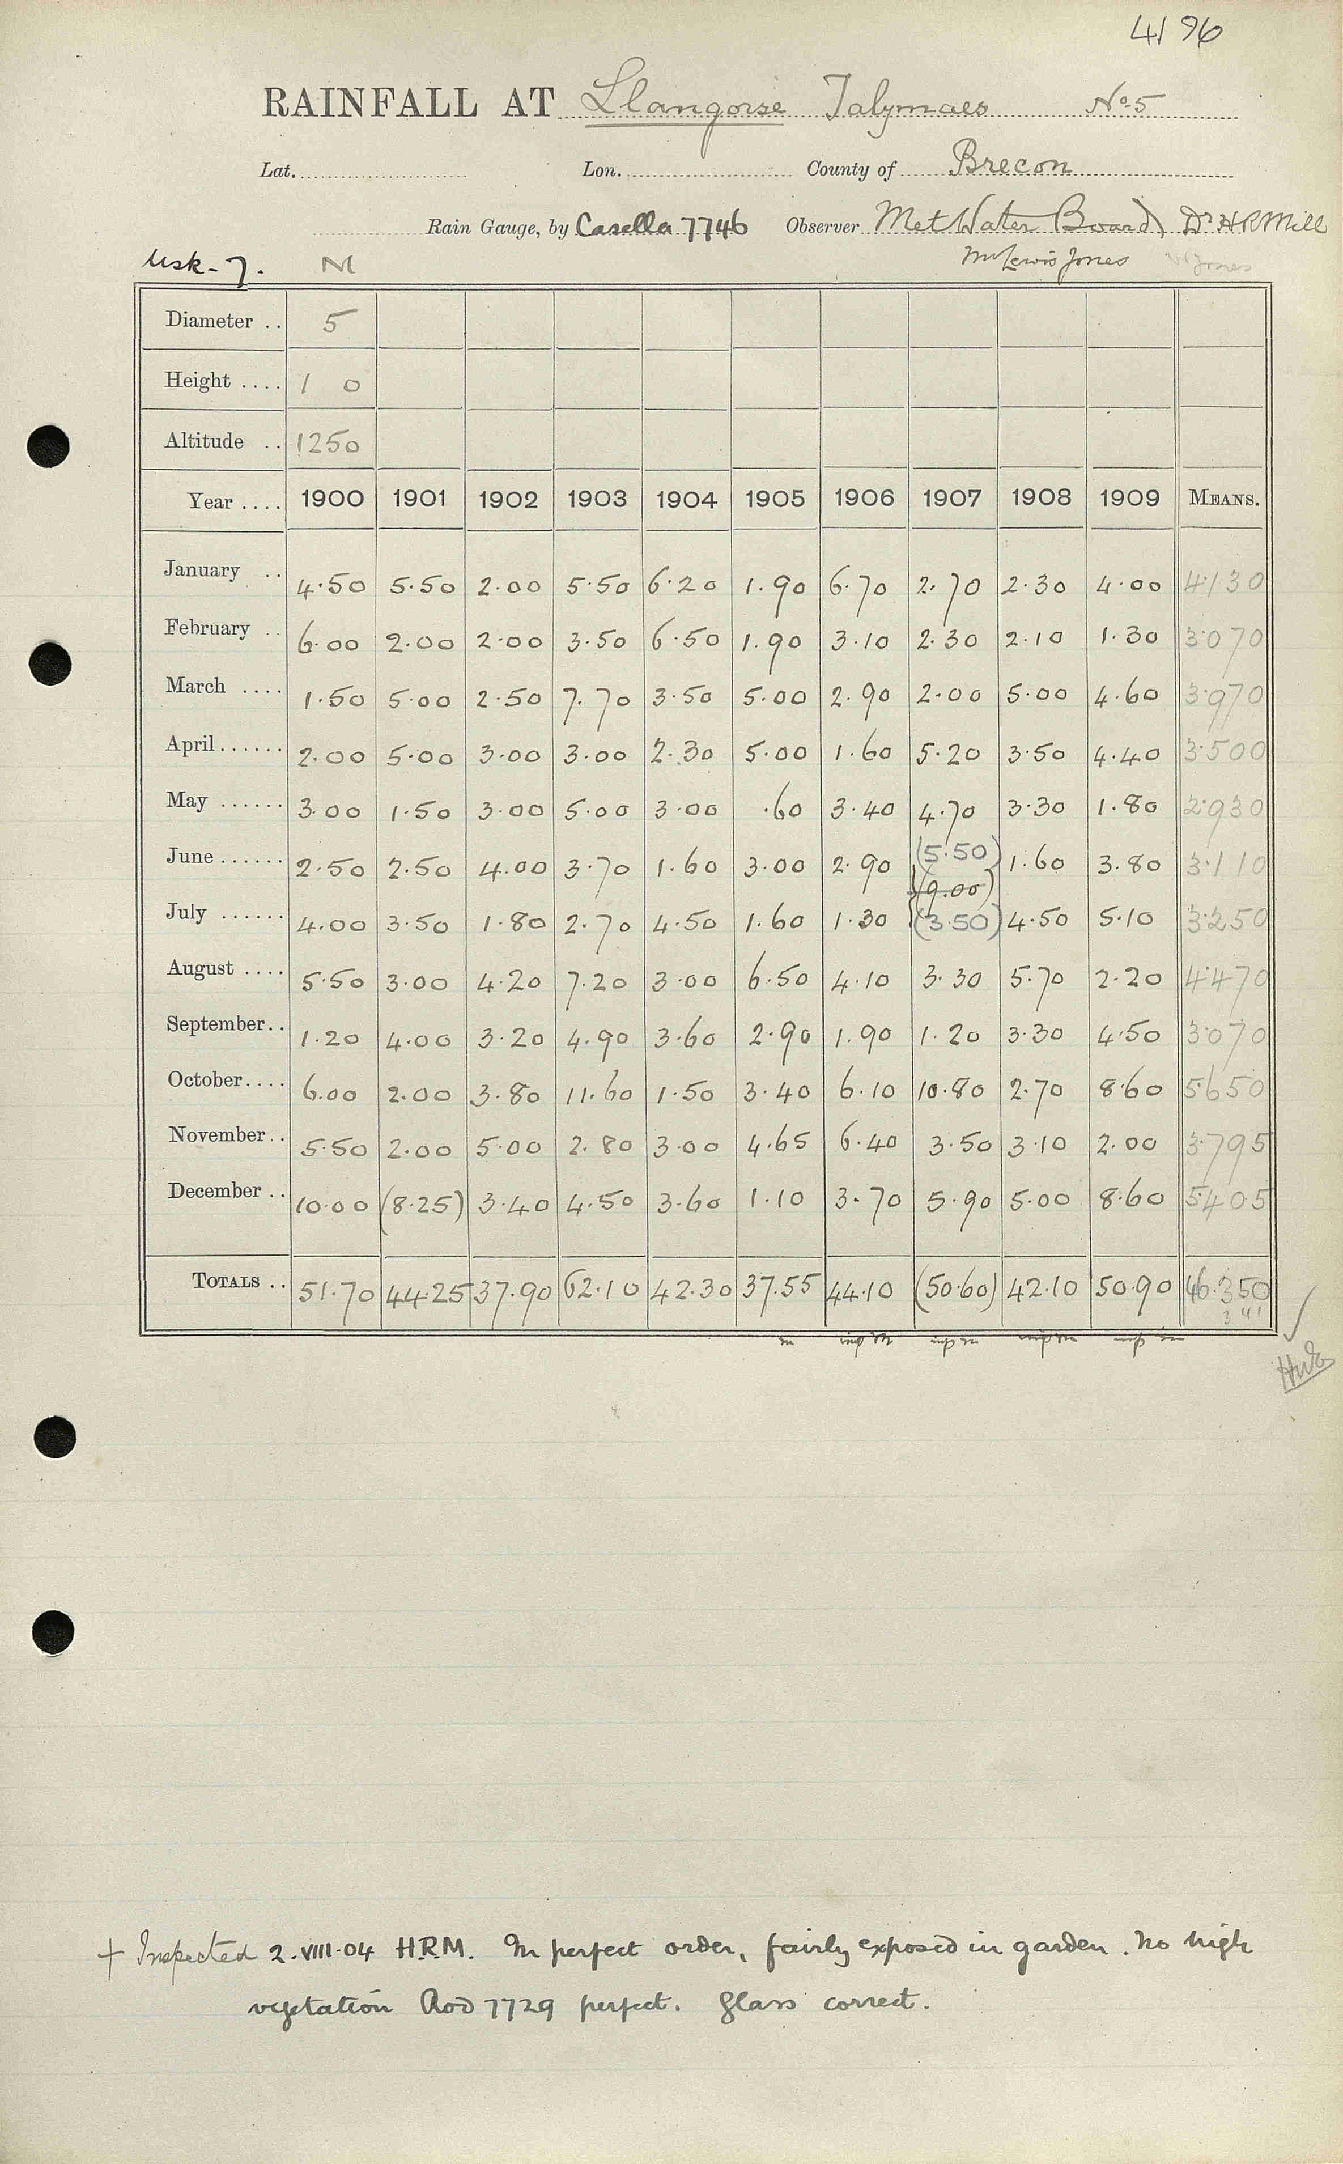 4196
RAINFALL AT Llangorse Talymaes No 5
Lat. Lon. County of Brecon
Rain Gauge, by Casella 7746 Observer Met Water Board, Dr H R Mill
Usk-7. M Mr Lewis Jones Jones
Diameter .. 5
Height .... 1 0
Altitude .. 1250
Year .... 1900 1901 1902 1903 1904 1905 1906 1907 1908 1909 MEANS.
January .. 4.50 5.50 2.00 5.50 6.20 1.90 6.70 2.70 2.30 4.00 4.130
February .. 6.00 2.00 2.00 3.50 6.50 1.90 3.10 2.30 2.10 1.30 3.070
March .... 1.50 5.00 2.50 7.70 3.50 5.00 2.90 2.00 5.00 4.60 3.970
April ...... 2.00 5.00 3.00 3.00 2.30 5.00 1.60 5.20 3.50 4.40 3.500
May ...... 3.00 1.50 3.00 5.00 3.00 .60 3.40 4.70 3.30 1.80 2.930
June ...... 2.50 2.50 4.00 3.70 1.60 3.00 2.90 (5.50) 1.60 3.80 3.110
(9.00)
July ...... 4.00 3.50 1.80 2.70 4.50 1.60 1.30 (3.50) 4.50 5.10 3.250
August .... 5.50 3.00 4.20 7.20 3.00 6.50 4.10 3.30 5.70 2.20 4.470
September .. 1.20 4.00 3.20 4.90 3.60 2.90 1.90 1.20 3.30 4.50 3.070
October .... 6.00 2.00 3.80 11.60 1.50 3.40 6.10 10.80 2.70 8.60 5.650
November .. 5.50 2.00 5.00 2.80 3.00 4.65 6.40 3.50 3.10 2.00 3.795
December .. 10.00 (8.25) 3.40 4.50 3.60 1.10 3.70 5.90 5.00 8.60 5.405
TOTALS .. 51.70 44.25 37.90 62.10 42.30 37.55 44.10 (50.60) 42.10 50.90 46.350
341
+ Inspected 2.VIII.04 H.R.M. In perfect order, fairly exposed in garden. No high
vegetation Rod 7729 perfect. Glass correct.